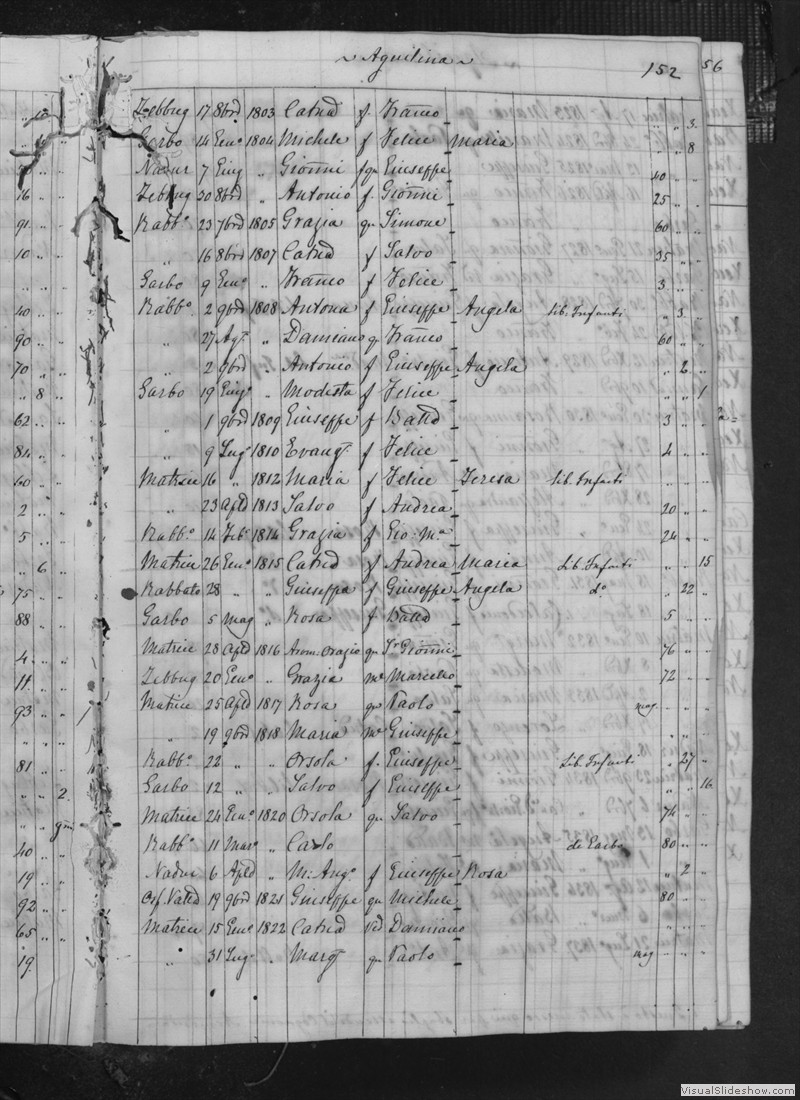 ~ Aquilina ~
152 56
Zebbug 17 8bre 1803 Catna f Franco 3 . .
Garbo 14 Geno 1804 Michele f Felice Maria . . 8
Nadur 7 Giug " Gionni f qu Giuseppe 40 . .
16 Zebbug 30 8bre " Antonio f Gionni 25 . .
91 Rabbo 23 7bre 1805 Grazia qu Simone 60 . .
10 " 16 8bre 1807 Catna f Salvo 35 . .
Garbo 9 Geno " Franco f Felice 3 . .
40 Rabbo 2 9bre 1808 Antona f Giuseppe Angela lib. Infanti . 3 .
90 " 27 Agto " Damiano qu Franco 60 . .
70 " 2 9bre " Antonio f Giuseppe Angela . 2 .
8 Garbo 19 Giugo " Modesta f Felice . . 1
62 " 1 9bre 1809 Giuseppe f Batta 3 . .
84 " 9 Lugo 1810 Evangta f Felice 4 . .
60 Matrice 16 " 1812 Maria f Felice Teresa lib. Infanti
2 " 23 Aple 1813 Salvo f Andrea 20 . .
5 Rabbo 14 Febo 1814 Grazia f Gio: Ma 24 . .
6 Matrice 26 Geno 1815 Catna f Andrea Maria Lib. Infanti . . 15
75 Rabbato 28 " " Giuseppa f Giuseppe Angela do . 22 .
88 Garbo 5 Mag " Rosa f Batta 5 . .
4 Matrice 28 Aple 1816 Arom: Orazio qu Sr Gionni 76 . .
11 Zebbug 20 Geno " Grazia me Marcello 72 . .
93 Matrice 25 Aple 1817 Rosa qu Paolo mag . .
" 19 9bre 1818 Maria me Giuseppe . . .
81 Rabbo 22 " " Orsola f Giuseppe Lib. Infanti . 27 .
2 Garbo 12 " " Salvo f Giuseppe . . 16
Matrice 24 Geno 1820 Orsola qu Salvo 74 . .
40 Rabbo 11 Maro " Carlo di Garbo 80 . .
19 Nadur 6 Aple " M: Anga f Giuseppe Rosa . 2 .
92 19 9bre 1821 Giuseppe qu Michele 80 . .
65 Matrice 15 Geno 1822 Catna Va Damiano . . .
19 " 31 Lugo " Margta qu Paolo mag . .
VisualSlideshow.com